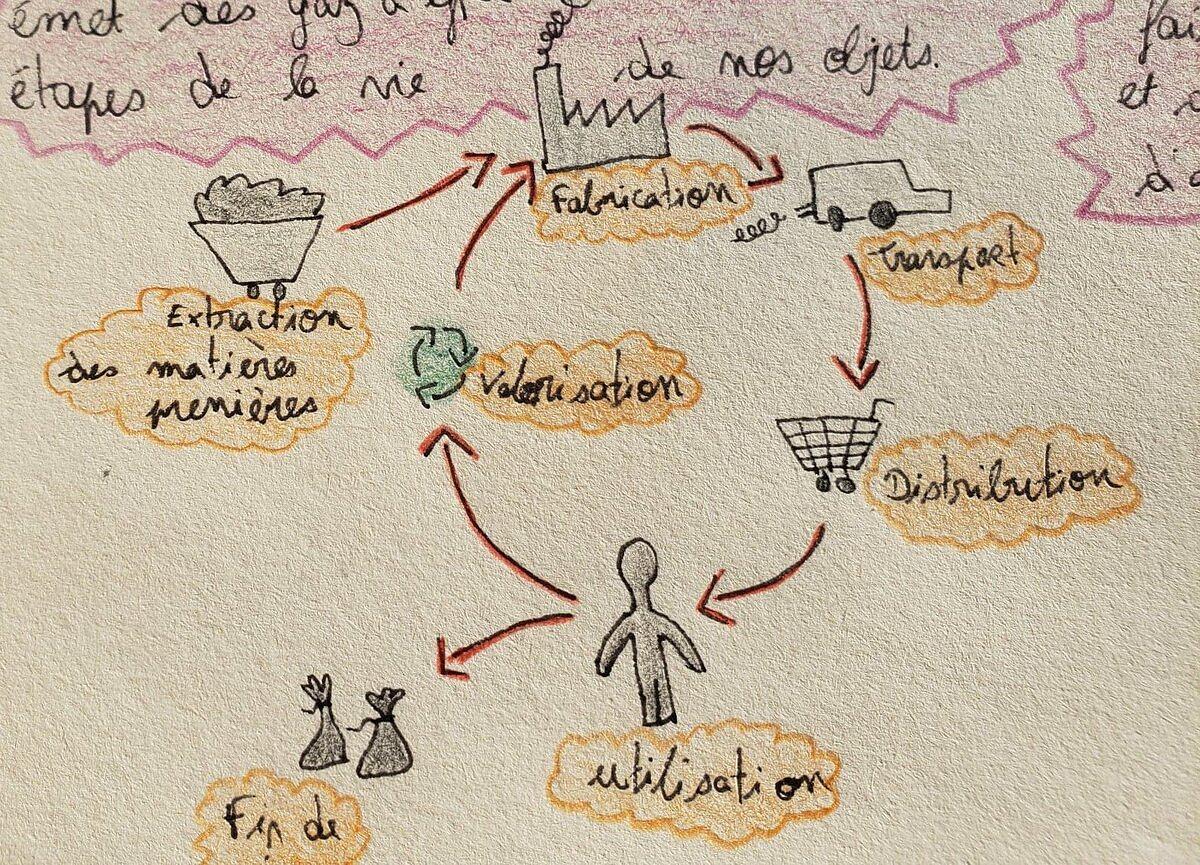 émet des gaz à
étapes de la vie de nos objets.
fai
et
Fabrication
Transport
Extraction
des matières
premières
Valorisation
Distribution
utilisation
Fin de